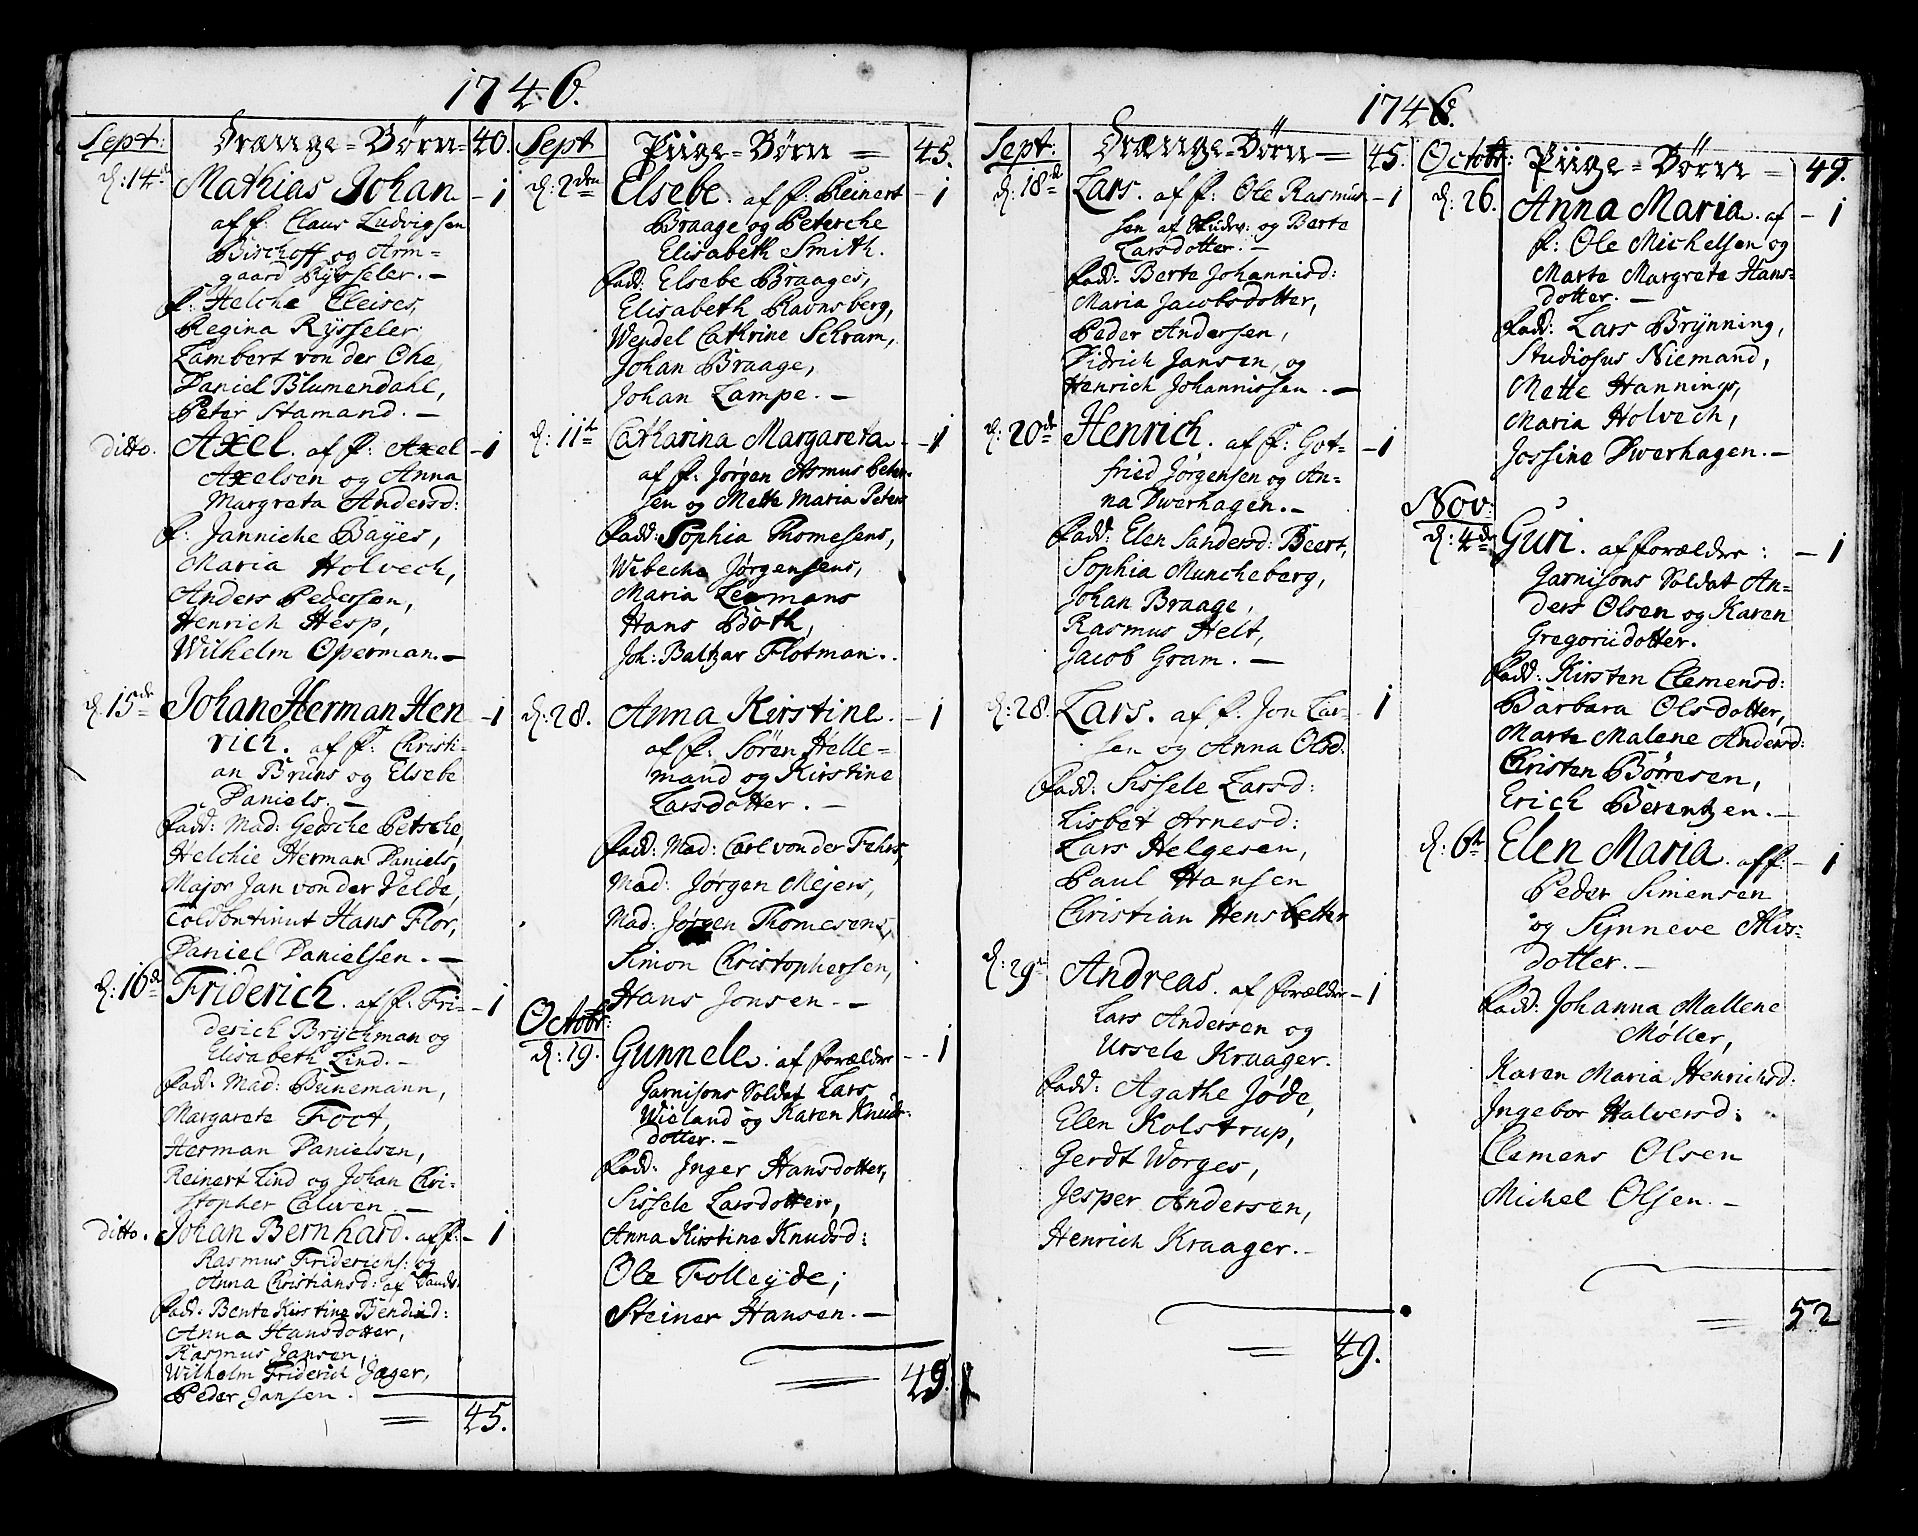 1746.
Sept: Drænge-Børn 40.
d: 14de Mathias Johan - 1
af f: Claus Ludvigsen
Bischoff og Arm=
gaard Rysseler. -
f: Helche Cleises,
Regina Rÿsseler
Lambert von der Ohe,
Daniel Blumendahl,
Peter Stamand. -
ditto. Axel. af f: Axel - 1
Axelsen og Anna
Margreta Andersd:
f: Janniche Bayes,
Maria Holvech,
Anders Pedersen,
Henrich Hesp,
Wilhelm Operman. -
d: 15de Johan Herman Hen - 1
rich. af f: Christi-
an Bruns og Elsebe
Daniels. -
fadd: Mad: Gedsche Petsche,
Helchie Herman Daniels,
Major Jan von der Velde,
Hans Flor,
Daniel Danielsen. -
d: 16de Friderich. af f: Fri- - 1
derich Brychman og
Elisabeth Lind. -
fadd: Mad: Bünemann,
Margarete Foct,
Herman Danielsen,
Reinert Lind og Johan Chri-
stopher Calwen. -
ditto. Johan Bernhard. af f: - 1
Rasmus Friderichs: og
Anna Christiansd: af
fadd: Bente Kirstine Bendixd:
Anna Hansdotter,
Rasmus Jansen,
Wilhelm Friderich Jæger,
Peder Jansen.
= 45.
Sept Piige-Børn = 45.
d: 2den Elsebe. af f: Reinert - 1
Braage og Petersche
Elisabeth Smith.
fadd: Elsebe Braages,
Elisabeth Ravnsberg,
Wendel Cathrine Schram,
Johan Braage,
Johan Lampe. -
d: 11te Catharina Margareta - 1
af f: Jørgen Asmus Peter
sen og Mette Maria Peters
fadd: Sophia Thomesens,
Wibecha Jørgensens,
Maria Leemans
Hans Both,
Joh: Baltzar Flotman.
d: 28. Anna Kirstine. - 1
af f: Søren Helle=
mand og Kirstine
Larsdotter. -
fadd: Mad: Carl von der Fehrs,
Mad: Jørgen Mejers,
Mad: Jørgen Thomesens,
Simon Christophersen,
Hans Jonsen. -
Octobr:
d: 19. Gunnele. af forældre - 1
Garnisons Soldat Lars
Wieland og Karen Knuds-
dotter. -
fadd: Inger Hansdotter,
Sissele Larsdotter,
Anna Kirstine Knudsd:
Ole Folleÿde;
Steiner Hansen. -
= 49.
1746.
Sept: Drænge-Børn = 45.
d: 18de Lars. af f: Ole Rasmus - 1
sen af og Berte
Larsdotter. -
fadd: Berte Johannisd:
Maria Jacobsdotter,
Peder Andersen,
Didrich Jansen, og
Henrich Johannissen. -
d: 20de Henrich. af f: Got- - 1
fried Jørgensen og An-
na Dwerhagen. -
fadd: Elen Sandersd: Beert,
Sophia Muncheberg,
Johan Braage,
Rasmus Helt,
Jacob Gram. -
d: 28. Lars. af f: Jon Lar- - 1
sen og Anna Olsd:
fadd: Sissele Larsd:
Lisbet Arnesd:
Lars Helgesen,
Paul Hansen
Christian Hensbetter
d: 29de Andreas. af forældre - 1
Lars Andersen og
Ursele Kraager.
fadd: Agathe Jøde,
Elen Kolstrup,
Gerdt Worges,
Jesper Andersen,
Henrich Kraager. -
= 49.
Octobr: Piige-Børn - 49.
d: 26. Anna Maria. af - 1
f: Ole Michelsen og
Marte Margrete Hans-
dotter. -
fadd: Lars Brÿnning,
Studiosus Niemand,
Mette Hannings,
Maria Holvech,
Jossine Dwerhagen. -
Nov:
d: 4de Guri. af forældre: - 1
Garnisons Soldat An-
ders Olsen og Karen
Gregorii dotter.
fadd: Kirsten Clemensd:
Barbara Olsdotter,
Marte Malene Andersd:
Christen Børresen,
Erich Berentzen. -
d: 6te Elen Maria. af f: - 1
Peder Simensen
og Synneve Nils-
dotter. -
fadd: Johanna Mallene
Møller,
Karen Maria Henrichsd:
Ingebor Halversd:
Clemens Olsen
Michel Olsen. -
= 52